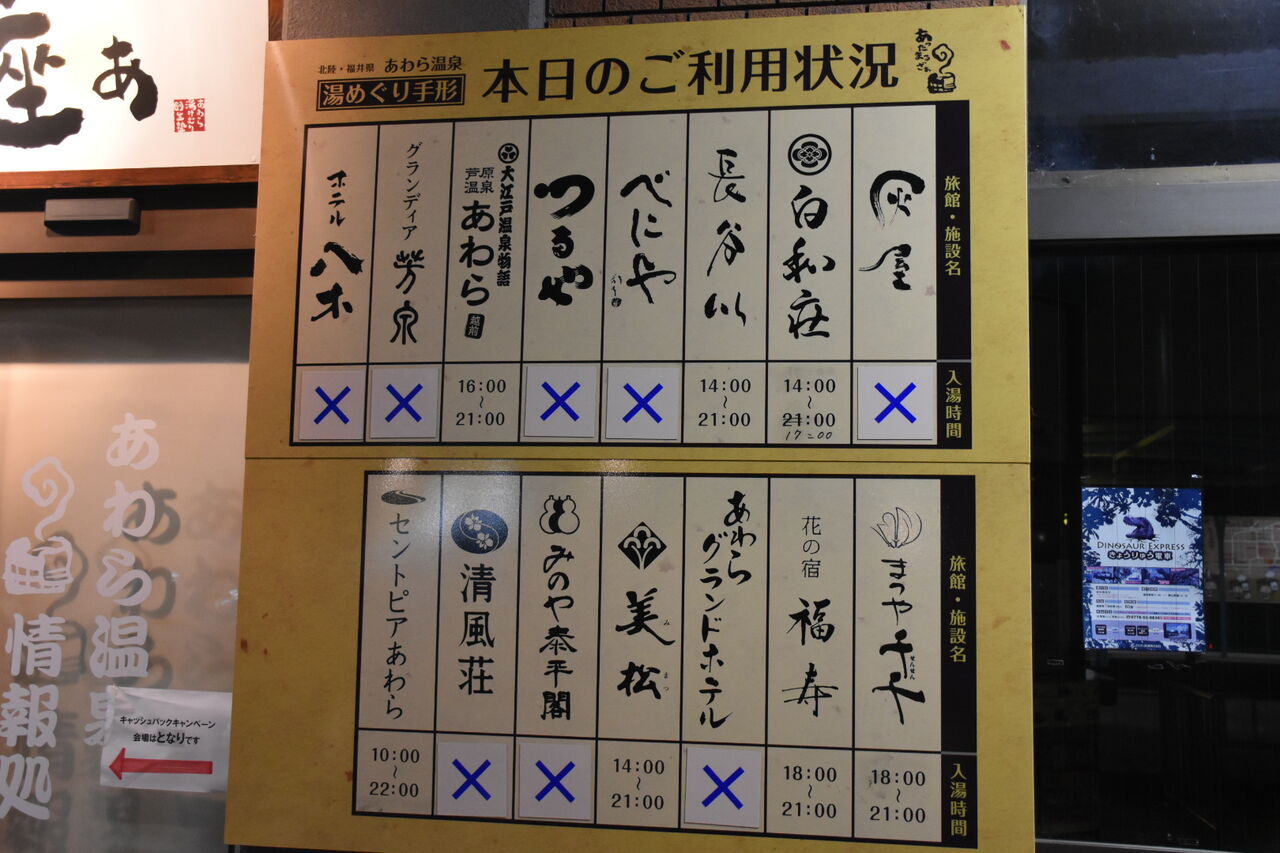 座
あ
あわら
湯けむり
北陸・福井県 あわら温泉
湯めぐり手形
本日のご利用状況
あったまっざぁ
旅館・施設名
入湯時間
灰屋
×
白和荘
14:00
~
21:00
17:00
長谷川
14:00
~
21:00
べにや
×
つるや
×
大江戸温泉物語
芦原温泉
あわら
越前
16:00
~
21:00
グランディア
芳泉
×
ホテル
八木
×
旅館・施設名
入湯時間
まつや千千
せんせん
18:00
~
21:00
花の宿
福寿
18:00
~
21:00
あわら
グランドホテル
×
美松
みまつ
14:00
~
21:00
みのや泰平閣
×
清風荘
×
セントピアあわら
10:00
~
22:00
あわら温泉
情報処
キャッシュバックキャンペーン
会場はとなりです
DINOSAUR EXPRESS
きょうりゅう電車